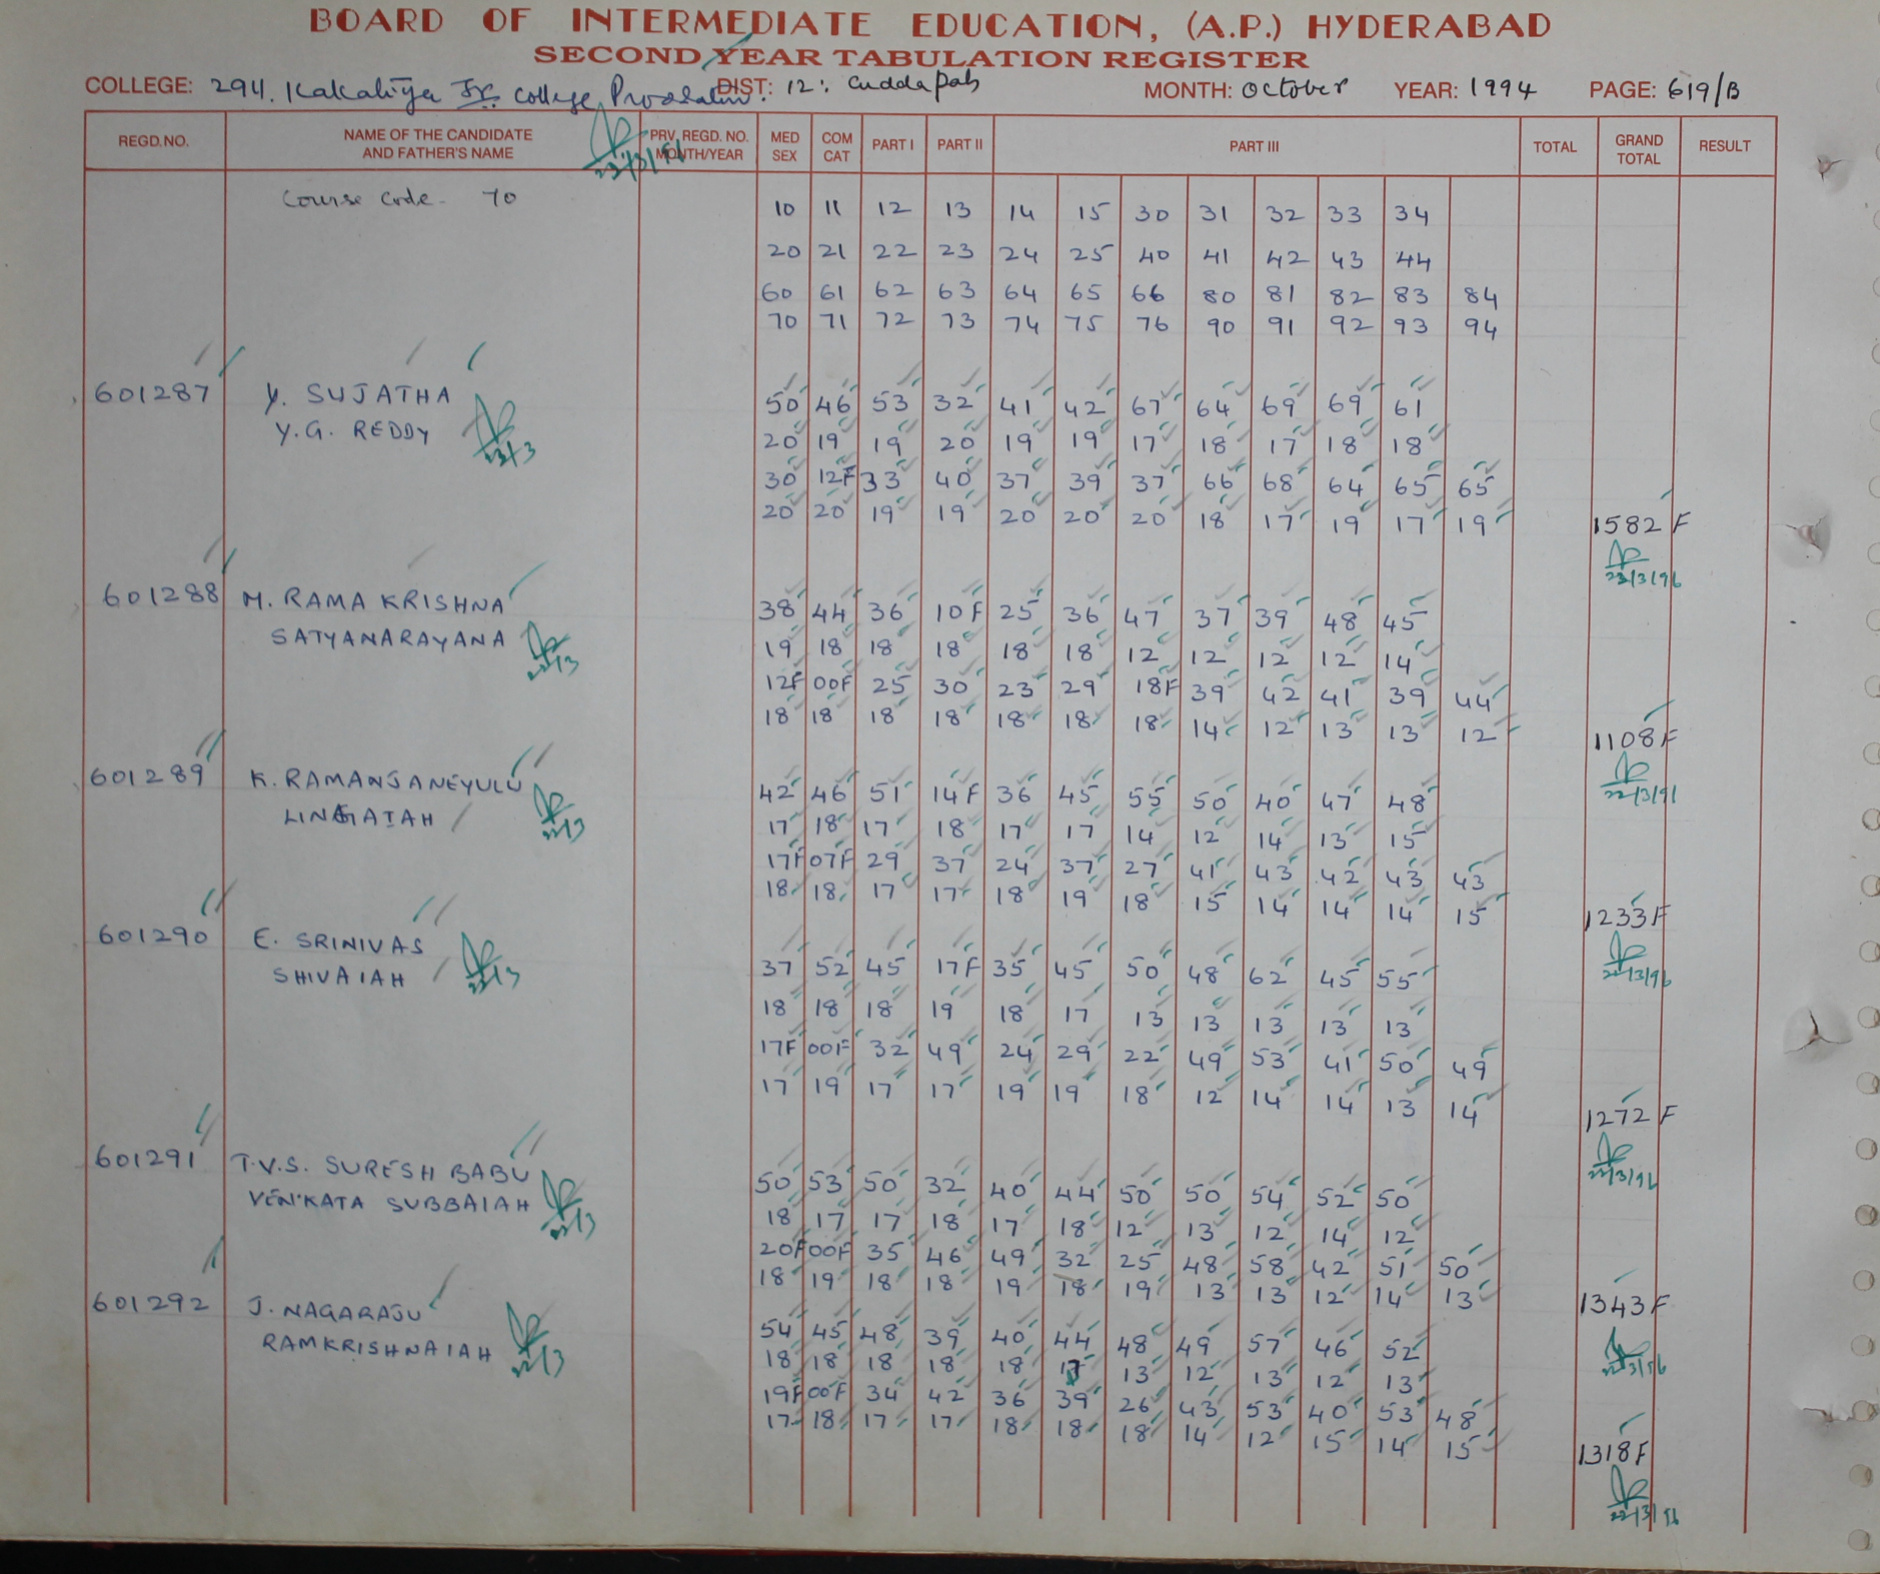 BOARD OF INTERMEDIATE EDUCATION, (A.P.) HYDERABAD
SECOND YEAR TABULATION REGISTER
COLLEGE: 294. Kakatiya Jr. College, DIST: 12: Cuddapah MONTH: October YEAR: 1994 PAGE: 619/B
REGD.NO. NAME OF THE CANDIDATE AND FATHER'S NAME PRV. REGD. NO. MONTH/YEAR MED SEX COM CAT PART I PART II PART III TOTAL GRAND TOTAL RESULT
Course Code - 70 10 11 12 13 14 15 30 31 32 33 34
20 21 22 23 24 25 40 41 42 43 44
60 61 62 63 64 65 66 80 81 82 83 84
70 71 72 73 74 75 76 90 91 92 93 94
601287 Y. SUJATHA 50 46 53 32 41 42 67 64 69 69 61
Y.G. REDDY 20 19 19 20 19 19 17 18 17 18 18
22/3 30 12F 33 40 37 39 37 66 68 64 65 65
20 20 19 19 20 20 20 18 17 19 17 19 1582 F
22/3/96
601288 M. RAMA KRISHNA 38 44 36 10F 25 36 47 37 39 48 45
SATYANARAYANA 19 18 18 18 18 18 12 12 12 12 14
22/3 12F 00F 25 30 23 29 18F 39 42 41 39 44
18 18 18 18 18 18 18 14 12 13 13 12 1108 F
22/3/96
601289 K. RAMANJANEYULU 42 46 51 14F 36 45 55 50 40 47 48
LINGAIAH 22/3 17 18 17 18 17 17 14 12 14 13 15
17F 07F 29 37 24 37 27 41 43 42 43 43
18 18 17 17 18 19 18 15 14 14 14 15 1233 F
22/3/96
601290 E. SRINIVAS 37 52 45 17F 35 45 50 48 62 45 55
SHIVAIAH 22/3 18 18 18 19 18 17 13 13 13 13 13
17F 00F 32 49 24 29 22 49 53 41 50 49
17 19 17 17 19 19 18 12 14 14 13 14 1272 F
22/3/96
601291 T.V.S. SURESH BABU 50 53 50 32 40 44 50 50 54 52 50
VENKATA SUBBAIAH 22/3 18 17 17 18 17 18 12 13 12 14 12
20F 00F 35 46 49 32 25 48 58 42 51 50
18 19 18 18 19 18 19 13 13 12 14 13 1343 F
22/3/96
601292 J. NAGARAJU 54 45 48 39 40 44 48 49 57 46 52
RAMKRISHNAIAH 22/3 18 18 18 18 18 17 13 12 13 12 13
19F 00F 34 42 36 39 26 43 53 40 53 48
17 18 17 17 18 18 18 14 12 15 14 15 1318 F
22/3/96